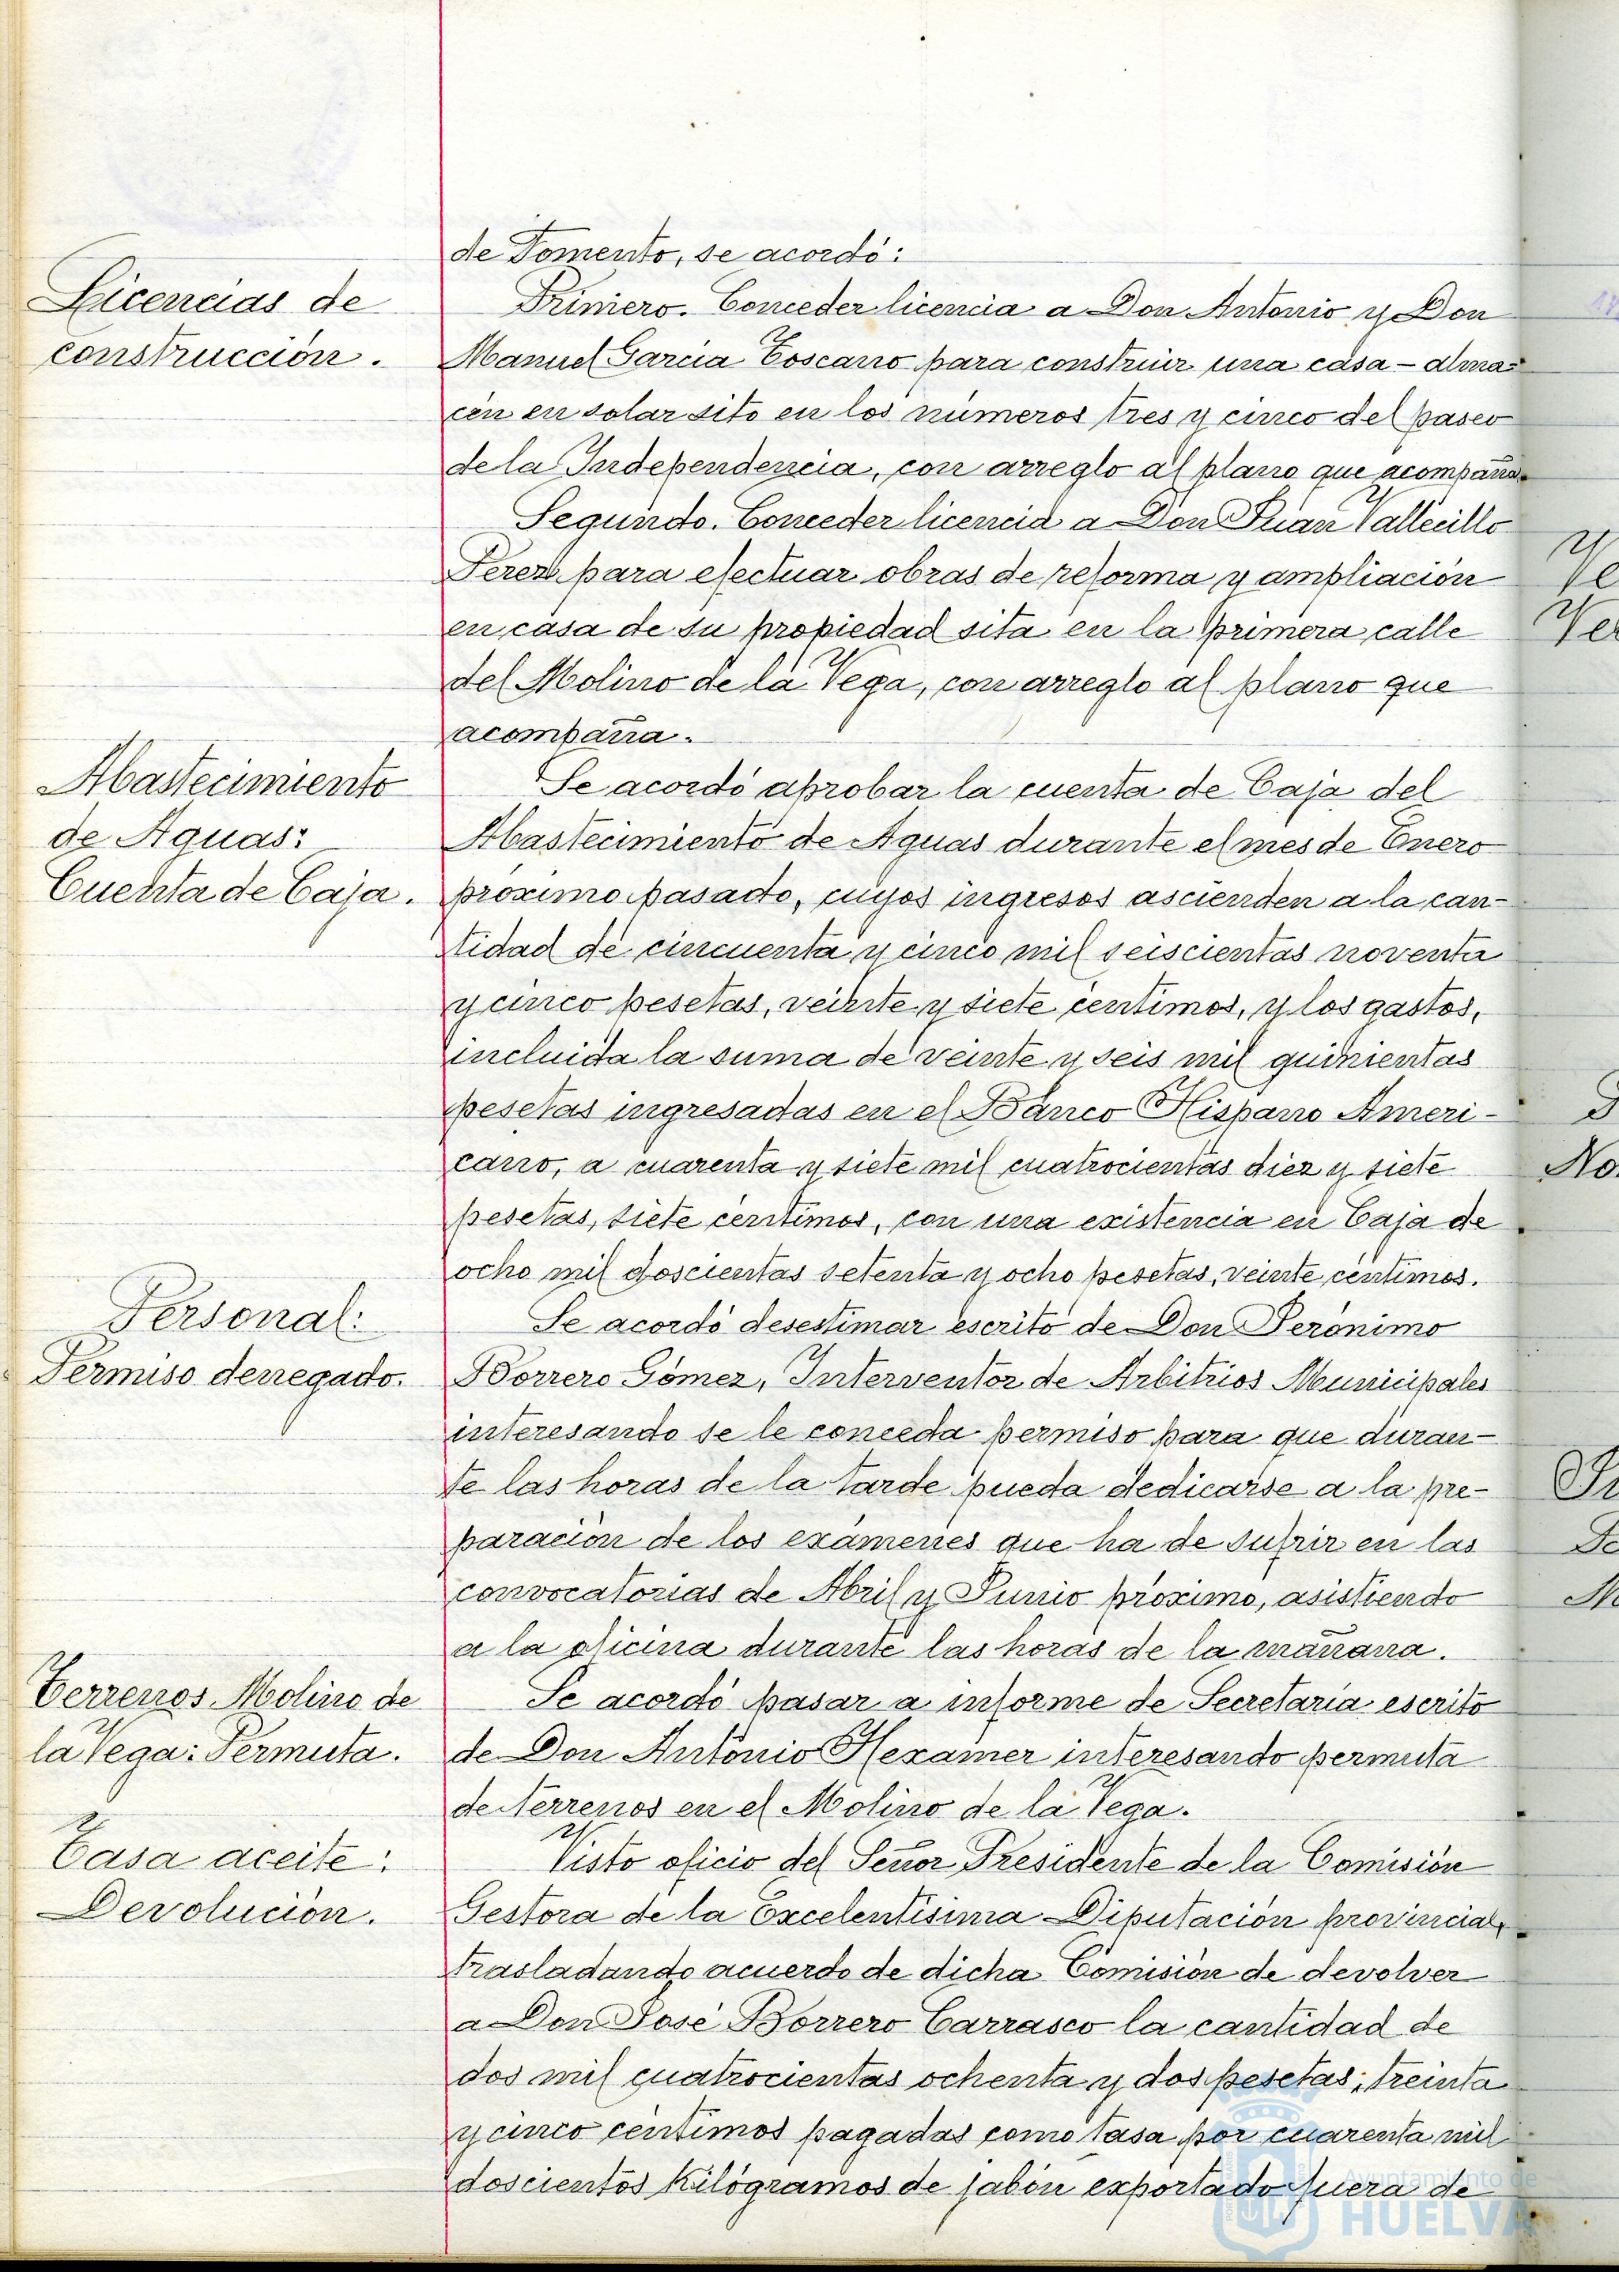 de Fomento, se acordó:
Licencias de
construcción.
Primero. Conceder licencia a Don Antonio y Don
Manuel García Toscano para construir una casa-alma-
cén en solar sito en los números tres y cinco del paseo
de la Independencia, con arreglo al plano que acompaña.
Segundo. Conceder licencia a Don Juan Vallecillo
Perez para efectuar obras de reforma y ampliación
en casa de su propiedad sita en la primera calle
del Molino de la Vega, con arreglo al plano que
acompaña.
Abastecimiento
de Aguas:
Cuenta de Caja.
Se acordó aprobar la cuenta de Caja del
Abastecimiento de Aguas durante el mes de Enero
próximo pasado, cuyos ingresos ascienden a la can-
tidad de cincuenta y cinco mil seiscientas noventa
y cinco pesetas, veinte y siete centimos, y los gastos,
incluida la suma de veinte y seis mil quinientas
pesetas ingresadas en el Banco Hispano Ameri-
cano, a cuarenta y siete mil cuatrocientas diez y siete
pesetas, siete centimos, con una existencia en Caja de
ocho mil doscientas setenta y ocho pesetas, veinte céntimos.
Personal:
Permiso denegado.
Se acordó desestimar escrito de Don Jerónimo
Borrero Gómez, Interventor de Arbitrios Municipales
interesando se le conceda permiso para que duran-
te las horas de la tarde pueda dedicarse a la pre-
paración de los exámenes que ha de sufrir en las
convocatorias de Abril y Junio próximo, asistiendo
a la oficina durante las horas de la mañana.
Terrenos Molino de
la Vega: Permuta.
Se acordó pasar a informe de Secretaría escrito
de Don Antonio Hexamer interesando permuta
de terrenos en el Molino de la Vega.
Tasa aceite:
Devolución.
Visto oficio del Señor Presidente de la Comisión
Gestora de la Excelentísima Diputación provincial,
trasladando acuerdo de dicha Comisión de devolver
a Don José Borrero Carrasco la cantidad de
dos mil cuatrocientas ochenta y dos pesetas, treinta
y cinco centimos pagadas como tasa por cuarenta mil
doscientos kilógramos de jabón exportado fuera de
Ayuntamiento de
HUELVA